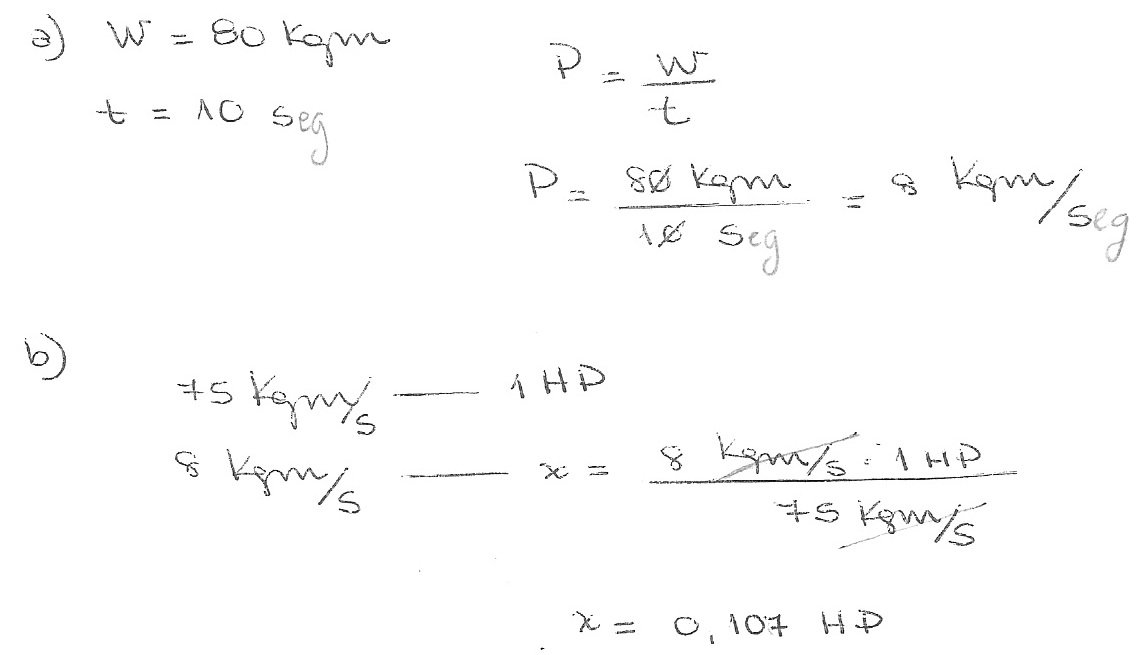 a) W = 80 Kgm
t = 10 seg
P = W / t
P = 80 Kgm / 10 seg = 8 Kgm/seg
b)
75 Kgm/s — 1 HP
8 Kgm/s — x = 8 Kgm/s . 1 HP / 75 Kgm/s
x = 0,107 HP